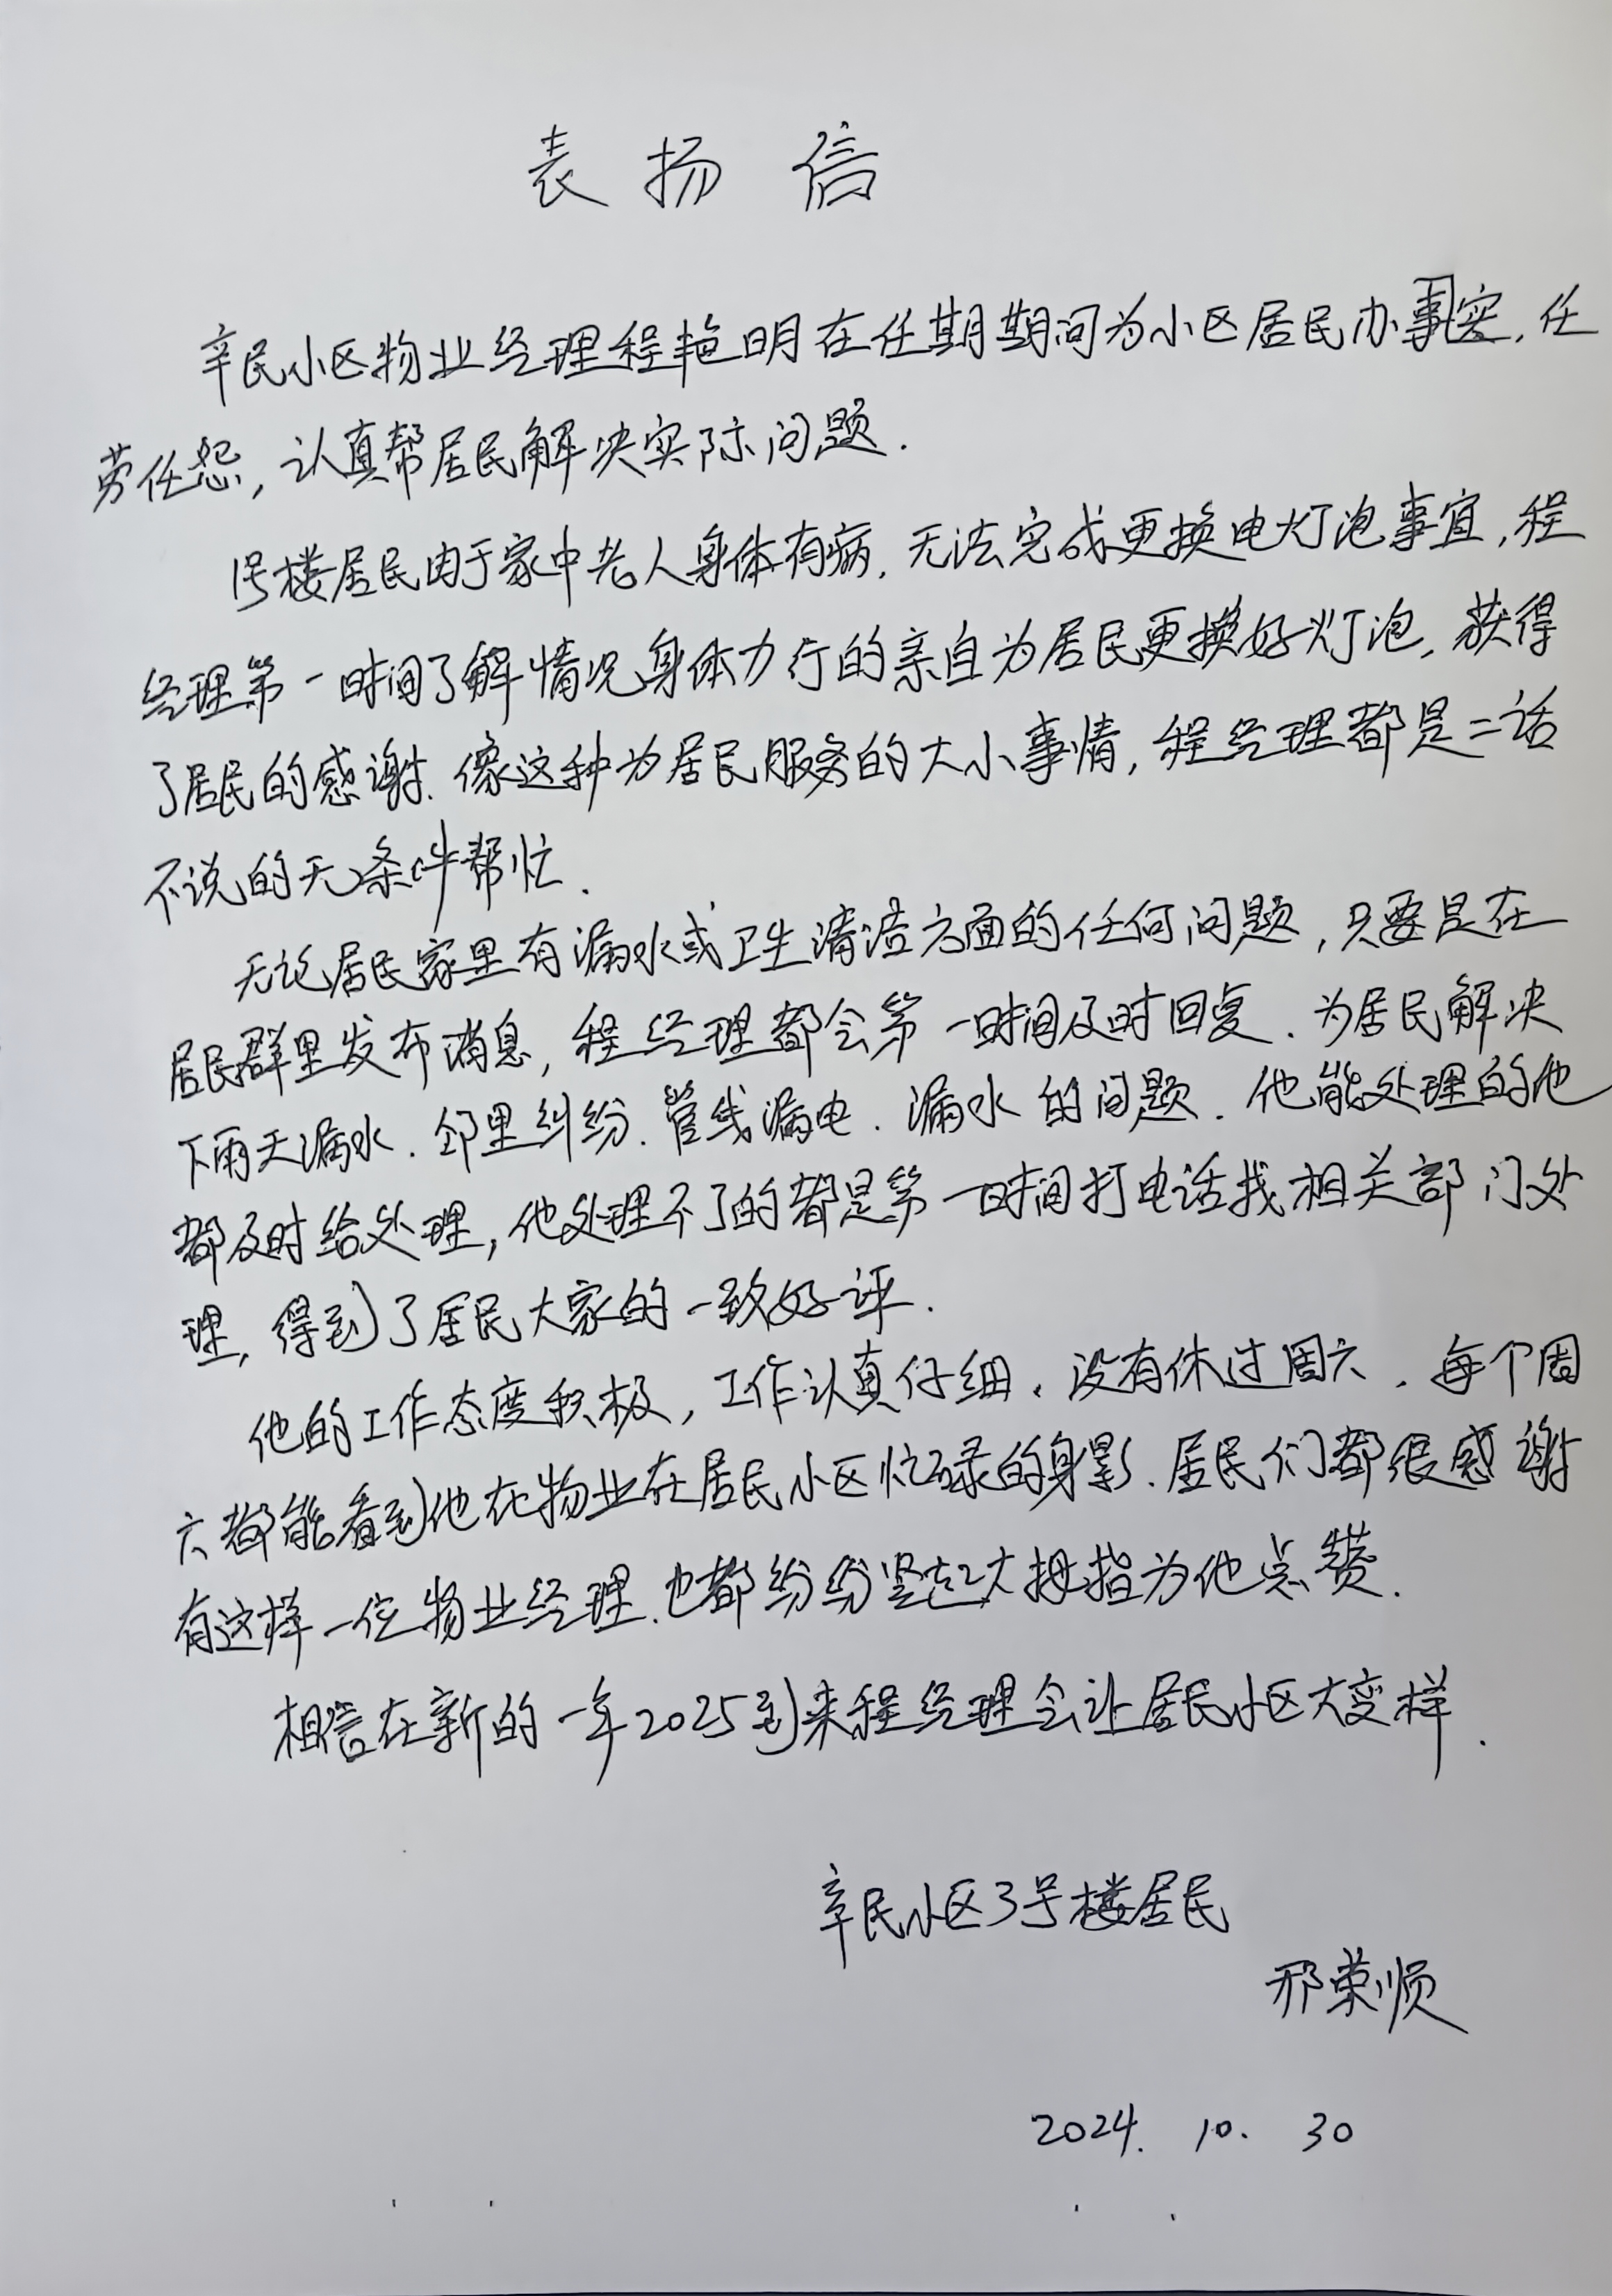 表扬信
辛民小区物业经理程艳明在任期期间为小区居民办事实，任
劳任怨，认真帮居民解决实际问题.
1号楼居民由于家中老人身体有病，无法完成更换电灯泡事宜，程
经理第一时间了解情况身体力行的亲自为居民更换好灯泡，获得
了居民的感谢.像这种为居民服务的大小事情，程经理都是二话
不说的无条件帮忙.
无论居民家里有漏水或卫生清洁方面的任何问题，只要是在
居民群里发布消息，程经理都会第一时间及时回复.为居民解决
下雨天漏水.邻里纠纷.管线漏电.漏水的问题.他能处理的他
都及时给处理，他处理不了的都是第一时间打电话找相关部门处
理，得到了居民大家的一致好评.
他的工作态度积极，工作认真仔细.没有休过周六.每个周
六都能看到他在物业在居民小区忙碌的身影.居民们都很感谢
有这样一位物业经理.也都纷纷竖起大拇指为他点赞.
相信在新的一年2025到来程经理会让居民小区大变样.
辛民小区3号楼居民
邢荣顺
2024. 10. 30